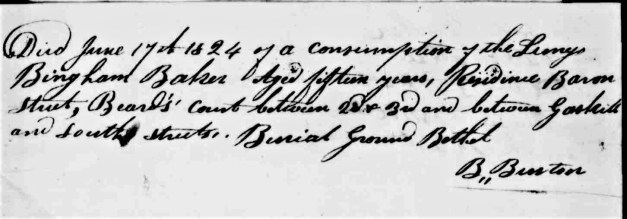 Died June 17th 1824 of a consumption of the Lungs
Bingham Baker Aged fifteen years, Residence Baron
Street, Beards' Court between 2d & 3rd and between Gaskill
and South streets. Burial Ground Bethel
B,, Burton